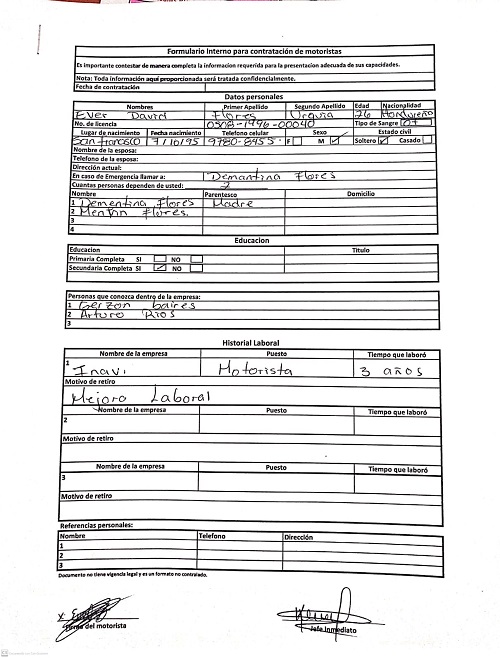 Formulario Interno para contratación de motoristas
Es importante contestar de manera completa la informacion requerida para la presentacion adecuada de sus capacidades.
Nota: Toda información aquí proporcionada será tratada confidencialmente.
Fecha de contratación
Datos personales
Nombres Primer Apellido Segundo Apellido Edad Nacionalidad
Ever David Flores Urquia 26 Hondureño
No. de licencia Tipo de Sangre O+
Lugar de nacimiento Fecha nacimiento Telefono celular Sexo Estado civil
San francisco 9/10/95 9780-8455 F M Soltero Casado
Nombre de la esposa:
Telefono de la esposa:
Dirección actual:
En caso de Emergencia llamar a: Demantina Flores
Cuantas personas dependen de usted: 2
Nombre Parentesco Domicilio
1 Dementina Flores Madre
2 Flores.
3
4
Educacion
Educacion Titulo
Primaria Completa SI NO
Secundaria Completa SI NO
Personas que conozca dentro de la empresa:
1 Gerzon baires
2 Arturo Rios
3
Historial Laboral
Nombre de la empresa Puesto Tiempo que laboró
1 Inavi Motorista 3 años
Motivo de retiro
Mejora Laboral
Nombre de la empresa Puesto Tiempo que laboró
2
Motivo de retiro
Nombre de la empresa Puesto Tiempo que laboró
3
Motivo de retiro
Referencias personales:
Nombre Telefono Dirección
1
2
3
Documento no tiene vigencia legal y es un formato no controlado.
x
Firma del motorista Jefe Inmediato